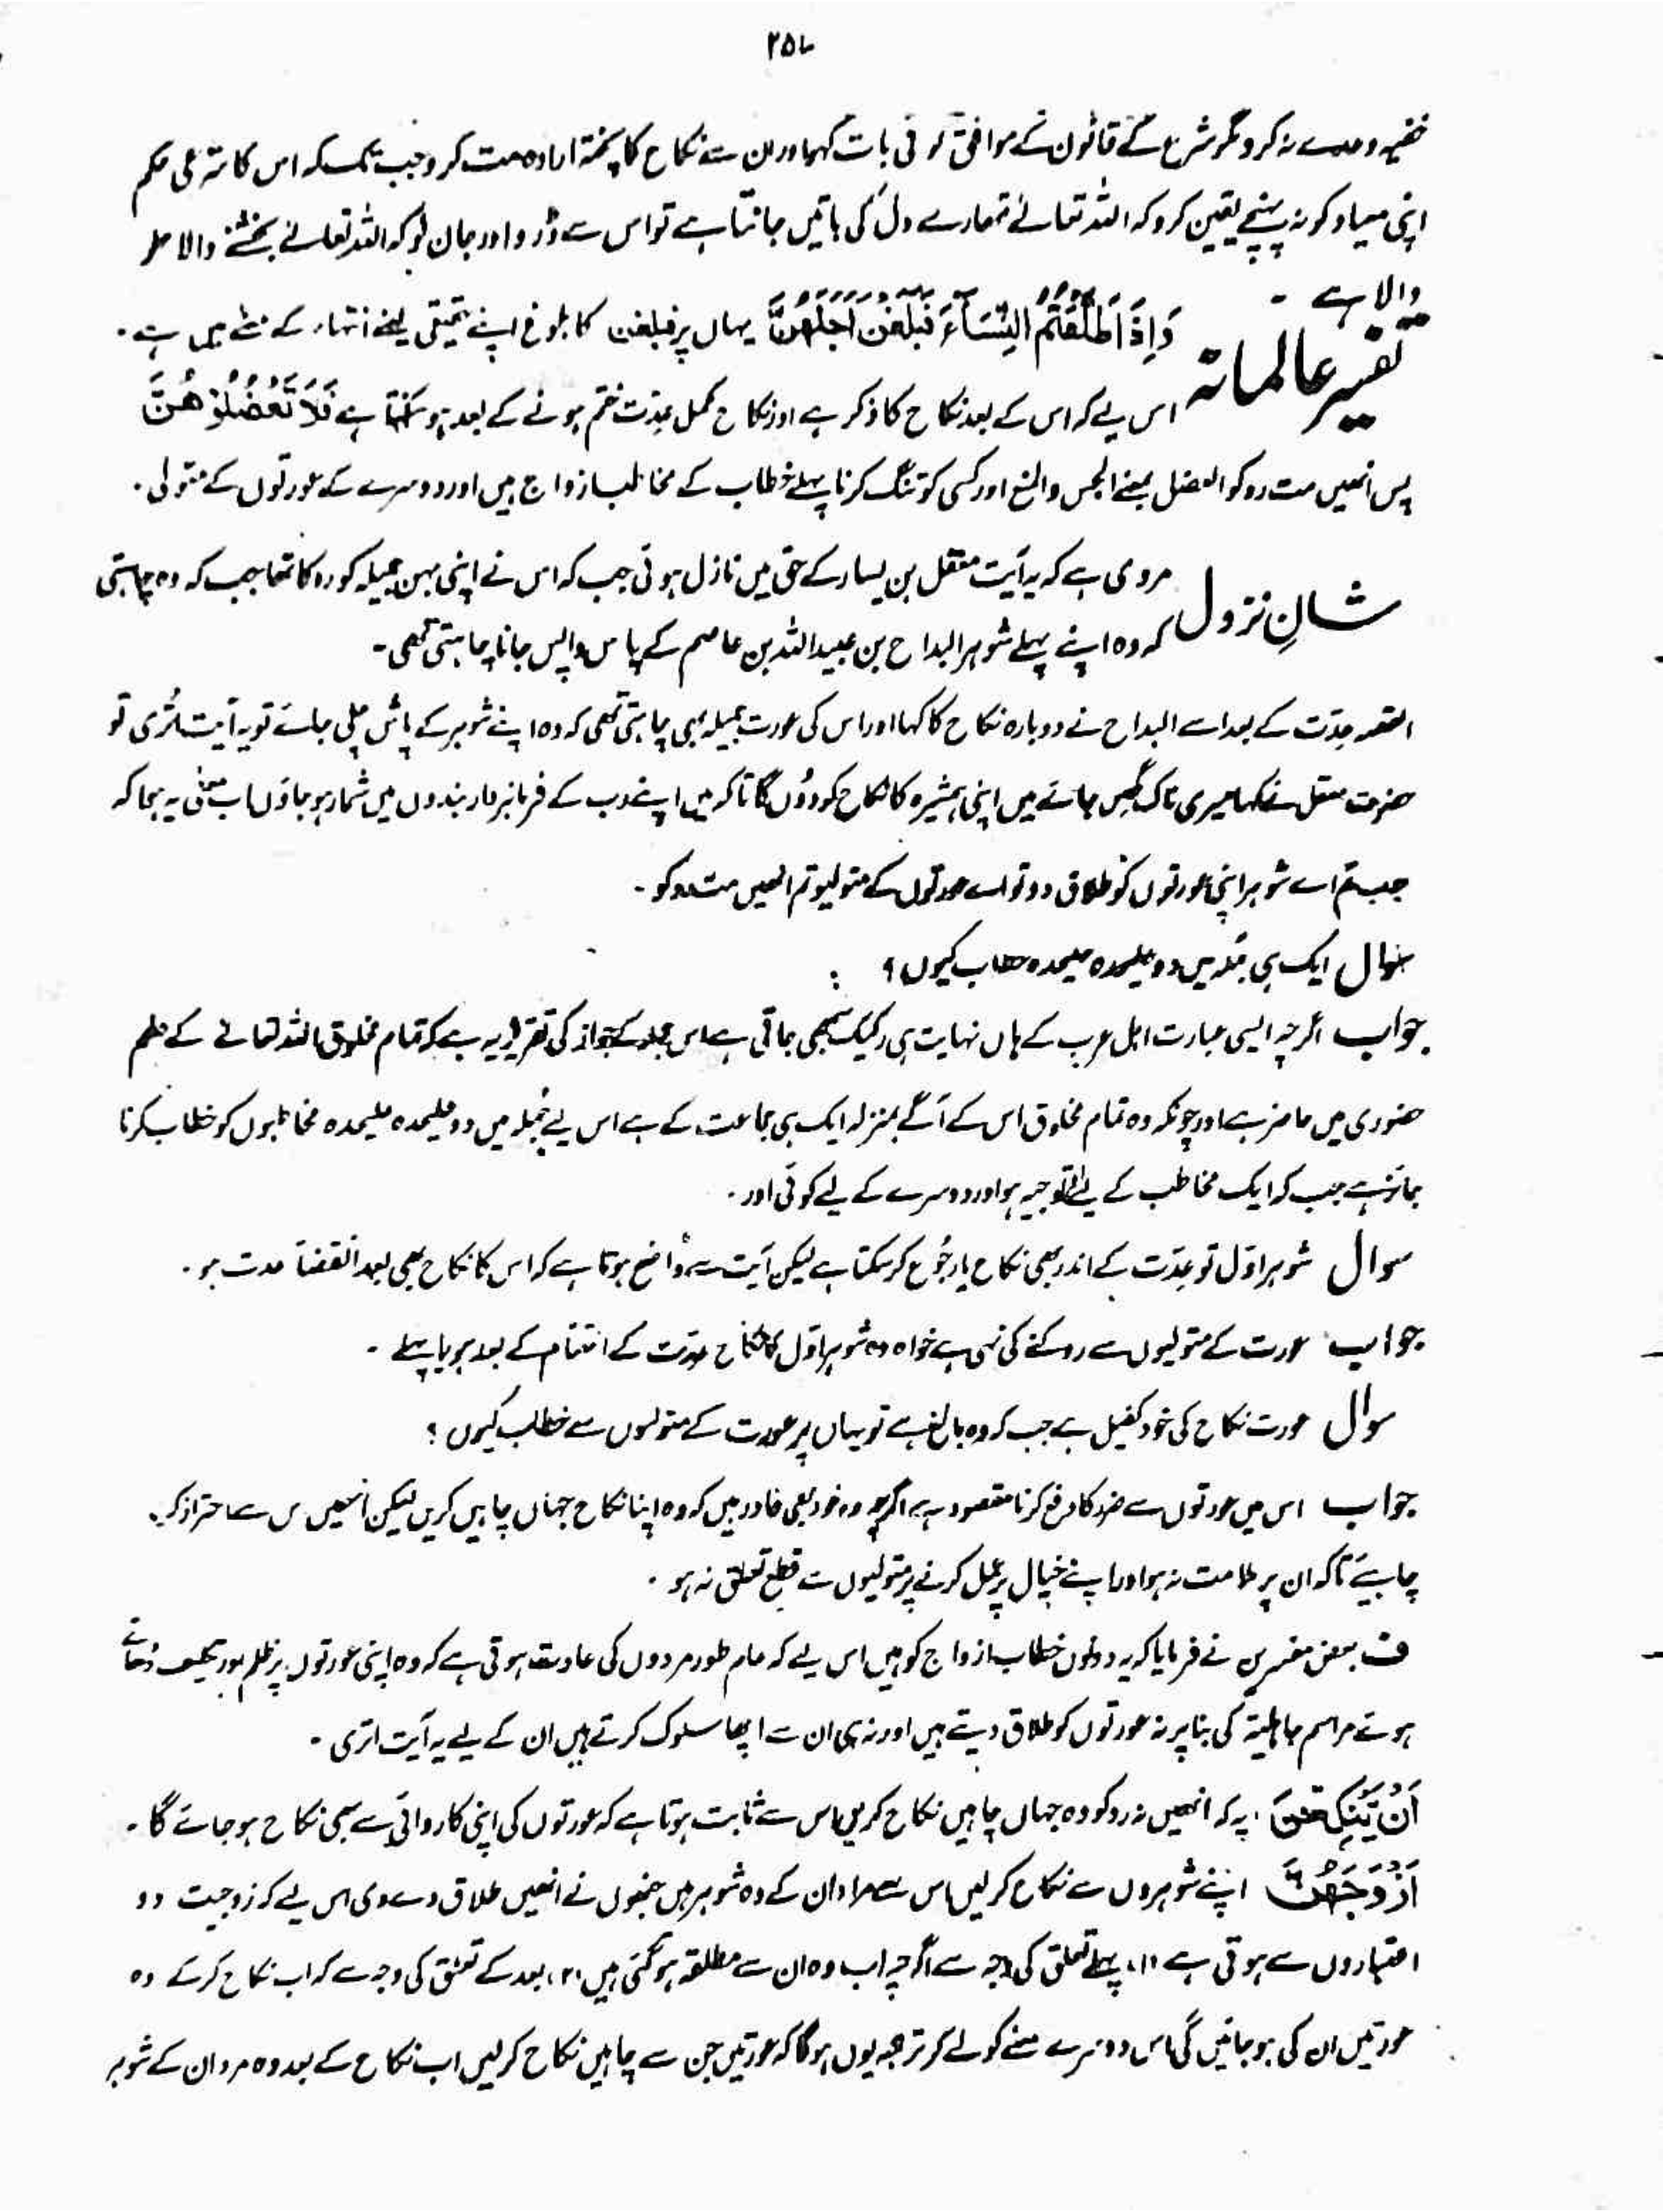 ۲۵۷
خفیہ وعدے نہ کرو مگر شرع کے قانون کے موافق کوئی بات کہو اور ان سے نکاح کا پختہ ارادہ مت کرو جب تک کہ اس کا شرعی حکم
اپنی میعاد کو نہ پہنچے یقین کرو کہ اللہ تعالےٰ تمہارے دل کی باتیں جانتا ہے تو اس سے ڈرو اور جان لو کہ اللہ تعالےٰ بخشنے والا حلم
والا ہے ۔
تفسیر عالمانہ وَاِذَا طَلَّقْتُمُ النِّسَآءَ فَبَلَغْنَ اَجَلَهُنَّ یہاں پر فبلغن کا بلوغ اپنے حقیقی یعنے انتہاء کے معنے میں ہے ۔
اس لیے کہ اس کے بعد نکاح کا ذکر ہے اور نکاح مکمل عدت ختم ہونے کے بعد ہو سکتا ہے فَلَا تَعْضُلُوْهُنَّ
پس انھیں مت روکو العضل بمعنے الحبس والمنع اور کسی کو تنگ کرنا پہلے خطاب کے مخاطب ازواج ہیں اور دوسرے کے عورتوں کے متولی ۔
شانِ نزول مروی ہے کہ یہ آیت معقل بن یسار کے حق میں نازل ہوئی جب کہ اس نے اپنی بہن جمیلہ کو روکا تھا جب کہ وہ چاہتی
کہ وہ اپنے پہلے شوہر البداح بن عبیداللہ بن عاصم کے پاس واپس جانا چاہتی تھی ۔
القصہ عدّت کے بعد اسے البداح نے دوبارہ نکاح کا کہا اور اس کی عورت جمیلہ بھی چاہتی تھی کہ وہ اپنے شوہر کے پاس چلی جائے تو یہ آیت اُتری تو
حضرت معقل نے کہا میری ناک گھس جائے میں اپنی ہمشیرہ کا نکاح کر دوں گا تاکہ میں اپنے رب کے فرمانبردار بندوں میں شمار ہو جاؤں اب معنٰی یہ ہوا کہ
جب تم اے شوہر اپنی عورتوں کو طلاق دو تو اے عورتوں کے متولیو تم انھیں مت روکو ۔
سوال ایک ہی جملہ میں دو علیحدہ علیحدہ خطاب کیوں ؟
جواب اگرچہ ایسی عبارت اہل عرب کے ہاں نہایت ہی رکیک سمجھی جاتی ہے اس جملہ کے جواز کی تقریر یہ ہے کہ تمام مخلوق اللہ تعالےٰ کے علم
حضوری میں حاضر ہے اور چونکہ وہ تمام مخلوق اس کے آگے بمنزلہ ایک ہی جماعت کے ہے اس لیے جملہ میں دو علیحدہ علیحدہ مخاطبوں کو خطاب کرنا
جائز ہے جب کہ ایک مخاطب کے لیے توجیہ ہو اور دوسرے کے لیے کوئی اور ۔
سوال شوہر اوّل تو عدّت کے اندر بھی نکاح یا رجوع کر سکتا ہے لیکن آیت سے واضح ہوتا ہے کہ اس کا نکاح بھی بعد انقضاءِ عدت ہو ۔
جواب عورت کے متولیوں سے روکنے کی نہی ہے خواہ وہ شوہر اوّل کا نکاح عدّت کے اختتام کے بعد ہو یا پہلے ۔
سوال عورت نکاح کی خود کفیل ہے جب کہ وہ بالغ ہے تو یہاں پر عورت کے متولیوں سے خطاب کیوں ؟
جواب اس میں عورتوں سے ضرر کا دفع کرنا مقصود ہے اگرچہ وہ خود بھی قادر ہیں کہ وہ اپنا نکاح جہاں چاہیں کریں لیکن انھیں اس سے احتراز کرنا
چاہیے تاکہ ان پر ملامت نہ ہو اور اپنے خیال پر عمل کرنے پر متولیوں سے قطع تعلق نہ ہو ۔
ف بعض مفسرین نے فرمایا کہ یہ دونوں خطاب ازواج کو ہیں اس لیے کہ عام طور مردوں کی عادت ہوتی ہے کہ وہ اپنی عورتوں پر ظلم اور
ہوئے مراسم جاہلیۃ کی بنا پر نہ عورتوں کو طلاق دیتے ہیں اور نہ ہی ان سے اچھا سلوک کرتے ہیں ان کے لیے یہ آیت اتری ۔
اَنْ یَّنْكِحْنَ یہ کہ انھیں نہ روکو وہ جہاں چاہیں نکاح کریں اس سے ثابت ہوتا ہے کہ عورتوں کی اپنی کاروائی سے بھی نکاح ہو جائے گا ۔
اَزْوَاجَهُنَّ اپنے شوہروں سے نکاح کر لیں اس سے مراد ان کے وہ شوہر ہیں جنھوں نے انھیں طلاق دے دی اس لیے کہ زوجیت دو
اعتباروں سے ہوتی ہے (۱) پہلے تعلق کی وجہ سے اگرچہ اب وہ ان سے مطلقہ ہو گئی ہیں (۲) بعد کے تعلق کی وجہ سے کہ اب نکاح کر کے وہ
عورتیں ان کی ہو جائیں گی اس دوسرے معنے کو لے کر ترجمہ یوں ہوگا کہ عورتیں جن سے چاہیں نکاح کر لیں اب نکاح کے بعد وہ مرد ان کے شوہر